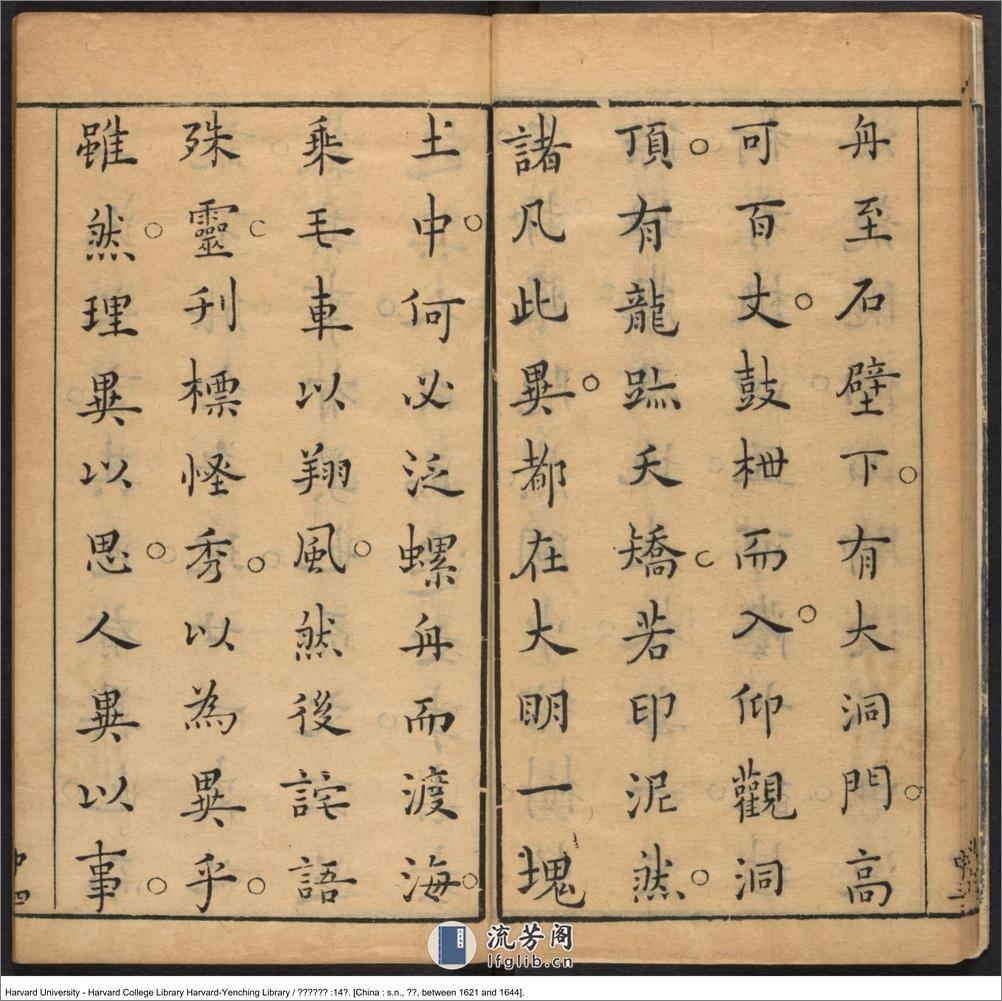 舟至石壁下有大洞門高
可百丈鼓枻而入仰觀洞
頂有龍跡夭矯若印泥然
諸凡此異都在大明一塊
土中何必泛螺舟而渡海
乘毛車以翔風然後詫語
殊靈刋標怪秀以為異乎
雖然理異以思人異以事
中三
中四
流芳阁
lfglib.cn
Harvard University - Harvard College Library Harvard-Yenching Library / ?????? :14?. [China : s.n., ??, between 1621 and 1644].